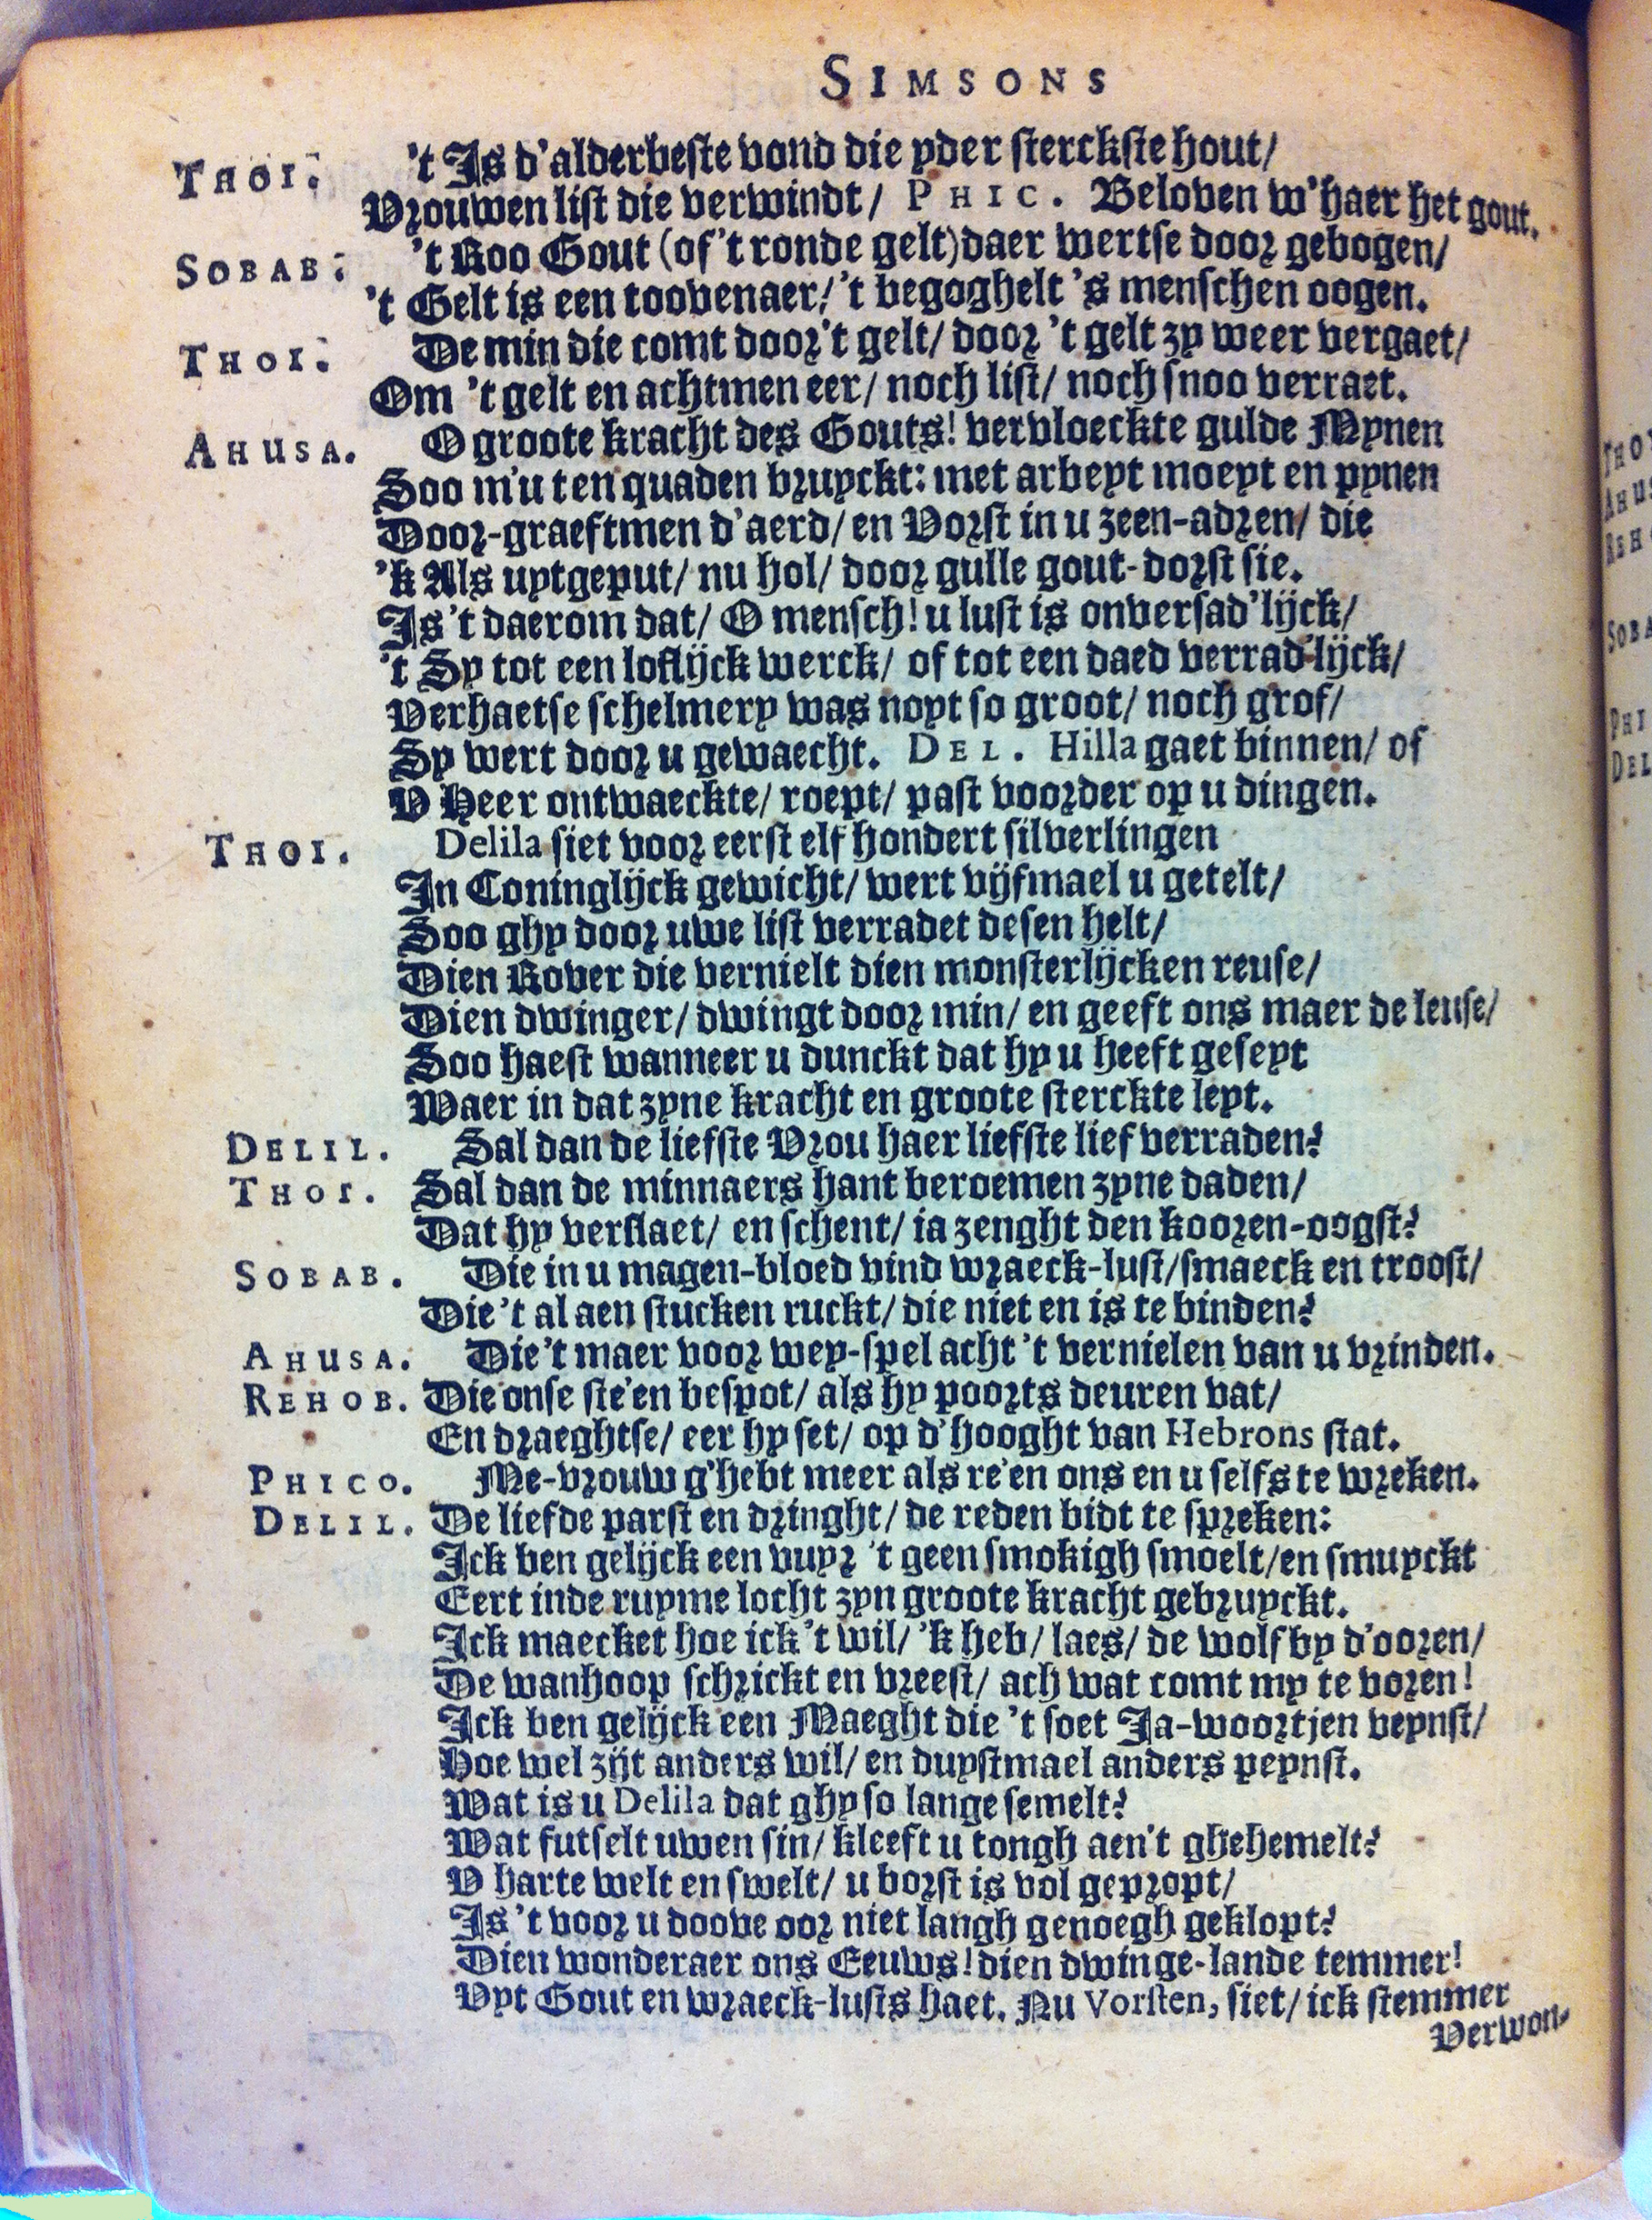 SIMSONS
THOI. 't Is d'alderbeste vond die yder sterckste hout/
Vrouwen list die verwindt/ PHIC. Beloven w'haer het gout.
SOBAB: 't Roo Gout (of't ronde gelt) daer wertse door gebogen/
't Gelt is een toovenaer/ 't begoghelt 's menschen oogen.
THOI: De min die comt door't gelt/ door 't gelt zy weer vergaet/
Om 't gelt en achtmen eer/ noch list/ noch snoo verraet.
AHUSA. O groote kracht des Gouts! vervloeckte gulde Mynen
Soo m'u ten quaden bruyckt: met arbeyt moeyt en pynen
Door-graeftmen d'aerd/ en Vorst in u zeen-adren/ die
'k Als uytgeput/ nu hol/ door gulle gout-dorst sie.
Is 't daerom dat/ O mensch! u lust is onversad'lijck/
't Sy tot een loflijck werck/ of tot een daed verrad'lijck/
Verhaetse schelmery was noyt so groot/ noch grof/
Sy wert door u gewaecht. DEL. Hilla gaet binnen/ of
V Heer ontwaeckte/ roept/ past voorder op u dingen.
THOI. Delila siet voor eerst elf hondert silverlingen
In Coninglijck gewicht/ wert vijfmael u getelt/
Soo ghy door uwe list verradet desen helt/
Dien Rover die vernielt dien monsterlijcken reuse/
Dien dwinger/ dwingt door min/ en geeft ons maer de leuse/
Soo haest wanneer u dunckt dat hy u heeft geseyt
Waer in dat zyne kracht en groote sterckte leyt.
DELIL. Sal dan de liefste Vrou haer liefste lief verraden?
THOI. Sal dan de minnaers hant beroemen zyne daden/
Dat hy verslaet/ en schent/ ia zenght den koozen-oogst?
SOBAB. Die in u magen-bloed vind wraeck-lust/ smaeck en troost/
Die 't al aen stucken ruckt/ die niet en is te binden?
AHUSA. Die 't maer voor wey-spel acht 't vernielen van u vrinden.
REHOB. Die onse ste'en bespot/ als hy poorts deuren vat/
En draeghtse/ eer hy set/ op d'hooght van Hebrons stat.
PHICO. Me-vrouw g'hebt meer als re'en ons en u selfs te wreken.
DELIL. De liefde parst en dringht/ de reden bidt te spreken:
Ick ben gelijck een vuyr 't geen smokigh smoelt/ en smuyckt
Eert inde ruyme locht zyn groote kracht gebruyckt.
Ick maecket hoe ick 't wil/ 'k heb/ laes/ de wolf by d'ooren/
De wanhoop schrickt en vreest/ ach wat comt my te voren!
Ick ben gelijck een Maeght die 't soet Ja-woortjen veynst/
Hoe wel zijt anders wil/ en duystmael anders peynst.
Wat is u Delila dat ghy so lange semelt?
Wat futselt uwen sin/ kleeft u tongh aen't ghehemelt?
V harte welt en swelt/ u borst is vol gepropt/
Is 't voor u doove oor niet langh genoegh geklopt?
Dien wonderaer ons Eeuws! dien dwinge-lande temmer!
Vyt Gout en wraeck-lusts haet. Nu Vorsten, siet/ ick stemmer
Verwon-
THO
AHUS
REHO
SOBA
PHI
DEL